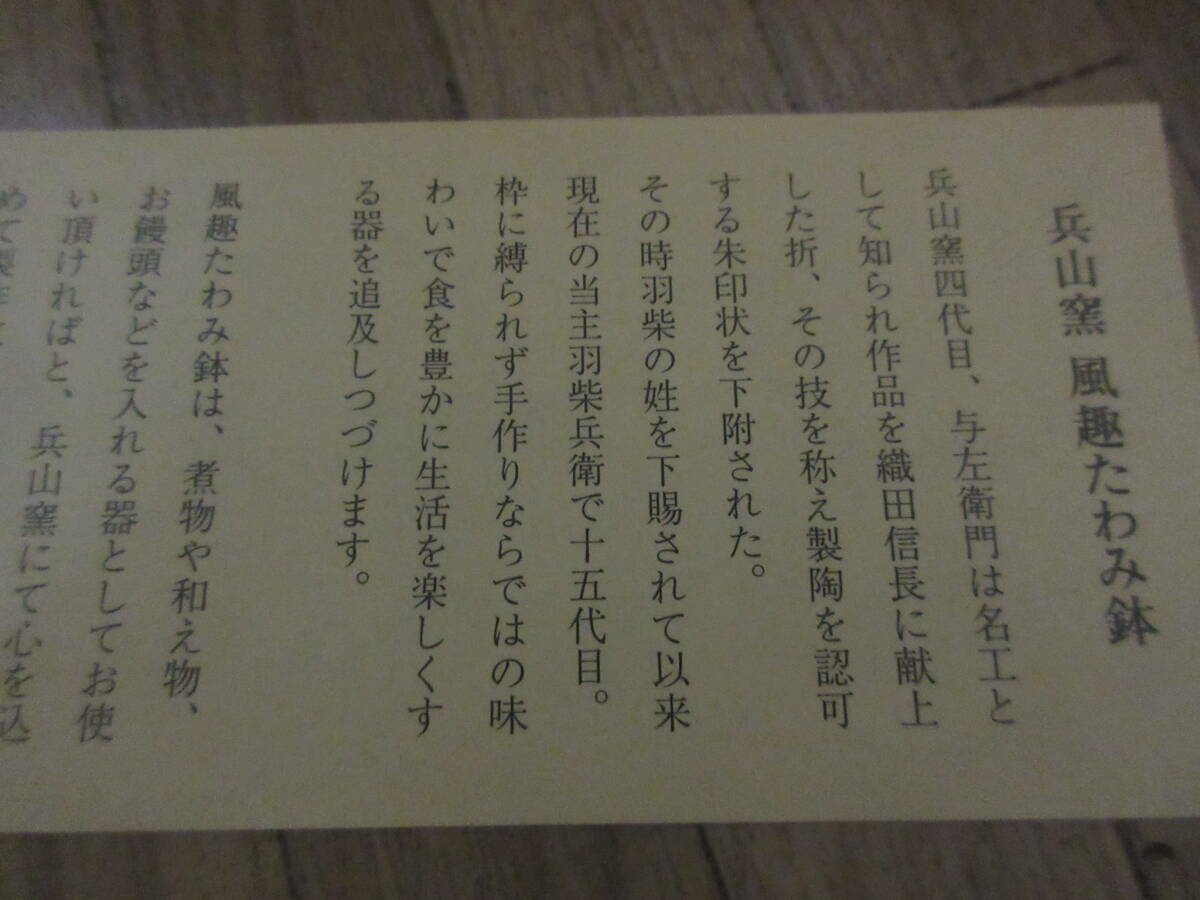 兵山窯 風趣たわみ鉢
兵山窯四代目、与左衛門は名工と
して知られ作品を織田信長に献上
した折、その技を称え製陶を認可
する朱印状を下附された。
その時羽柴の姓を下賜されて以来
現在の当主羽柴兵衛で十五代目。
枠に縛られず手作りならではの味
わいで食を豊かに生活を楽しくす
る器を追及しつづけます。
風趣たわみ鉢は、煮物や和え物、
お饅頭などを入れる器としてお使
い頂ければと、兵山窯にて心を込
めて製作